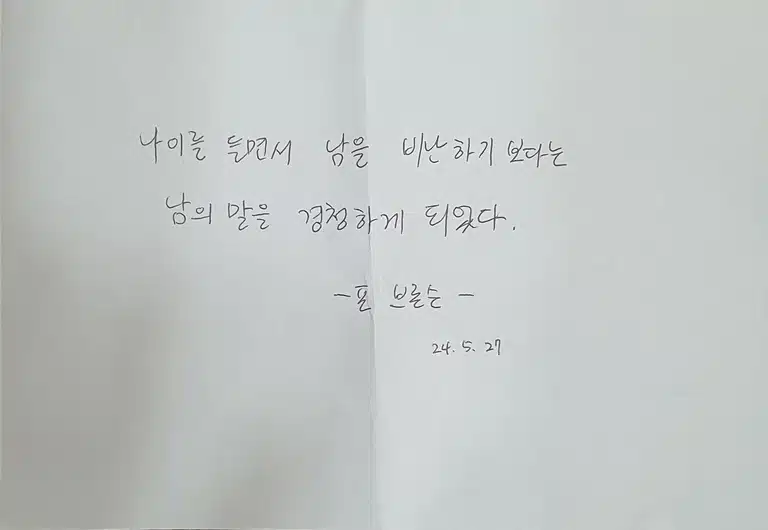 나이를 들면서 남을 비난하기 보다는
남의 말을 경청하게 되었다.
- 폰 브르슨 -
24. 5. 27